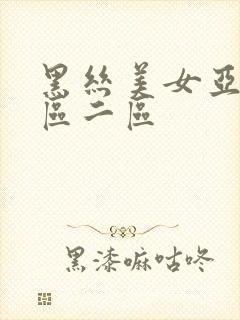 黑丝美女亞
區二區
黑漆嘛咕咚